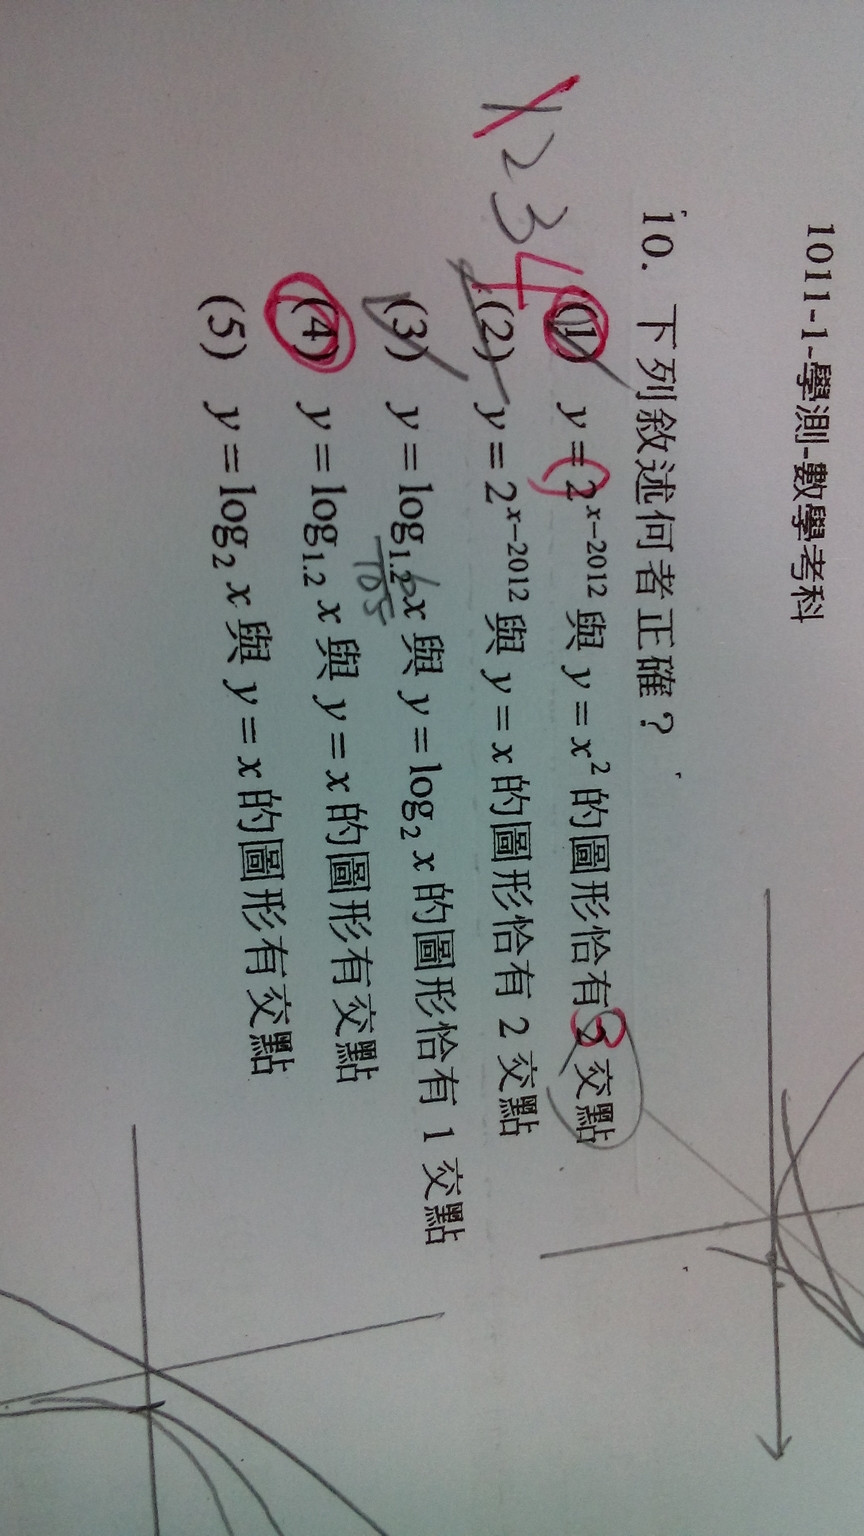 1011-1-學測-數學考科
10. 下列敘述何者正確？
(1) y = 2^{x-2012} 與 y = x^2 的圖形恰有 3 交點
(2) y = 2^{x-2012} 與 y = x 的圖形恰有 2 交點
(3) y = log_{1.2} x 與 y = log_2 x 的圖形恰有 1 交點
(4) y = log_{1.2} x 與 y = x 的圖形有交點
(5) y = log_2 x 與 y = x 的圖形有交點
1 2 3 4